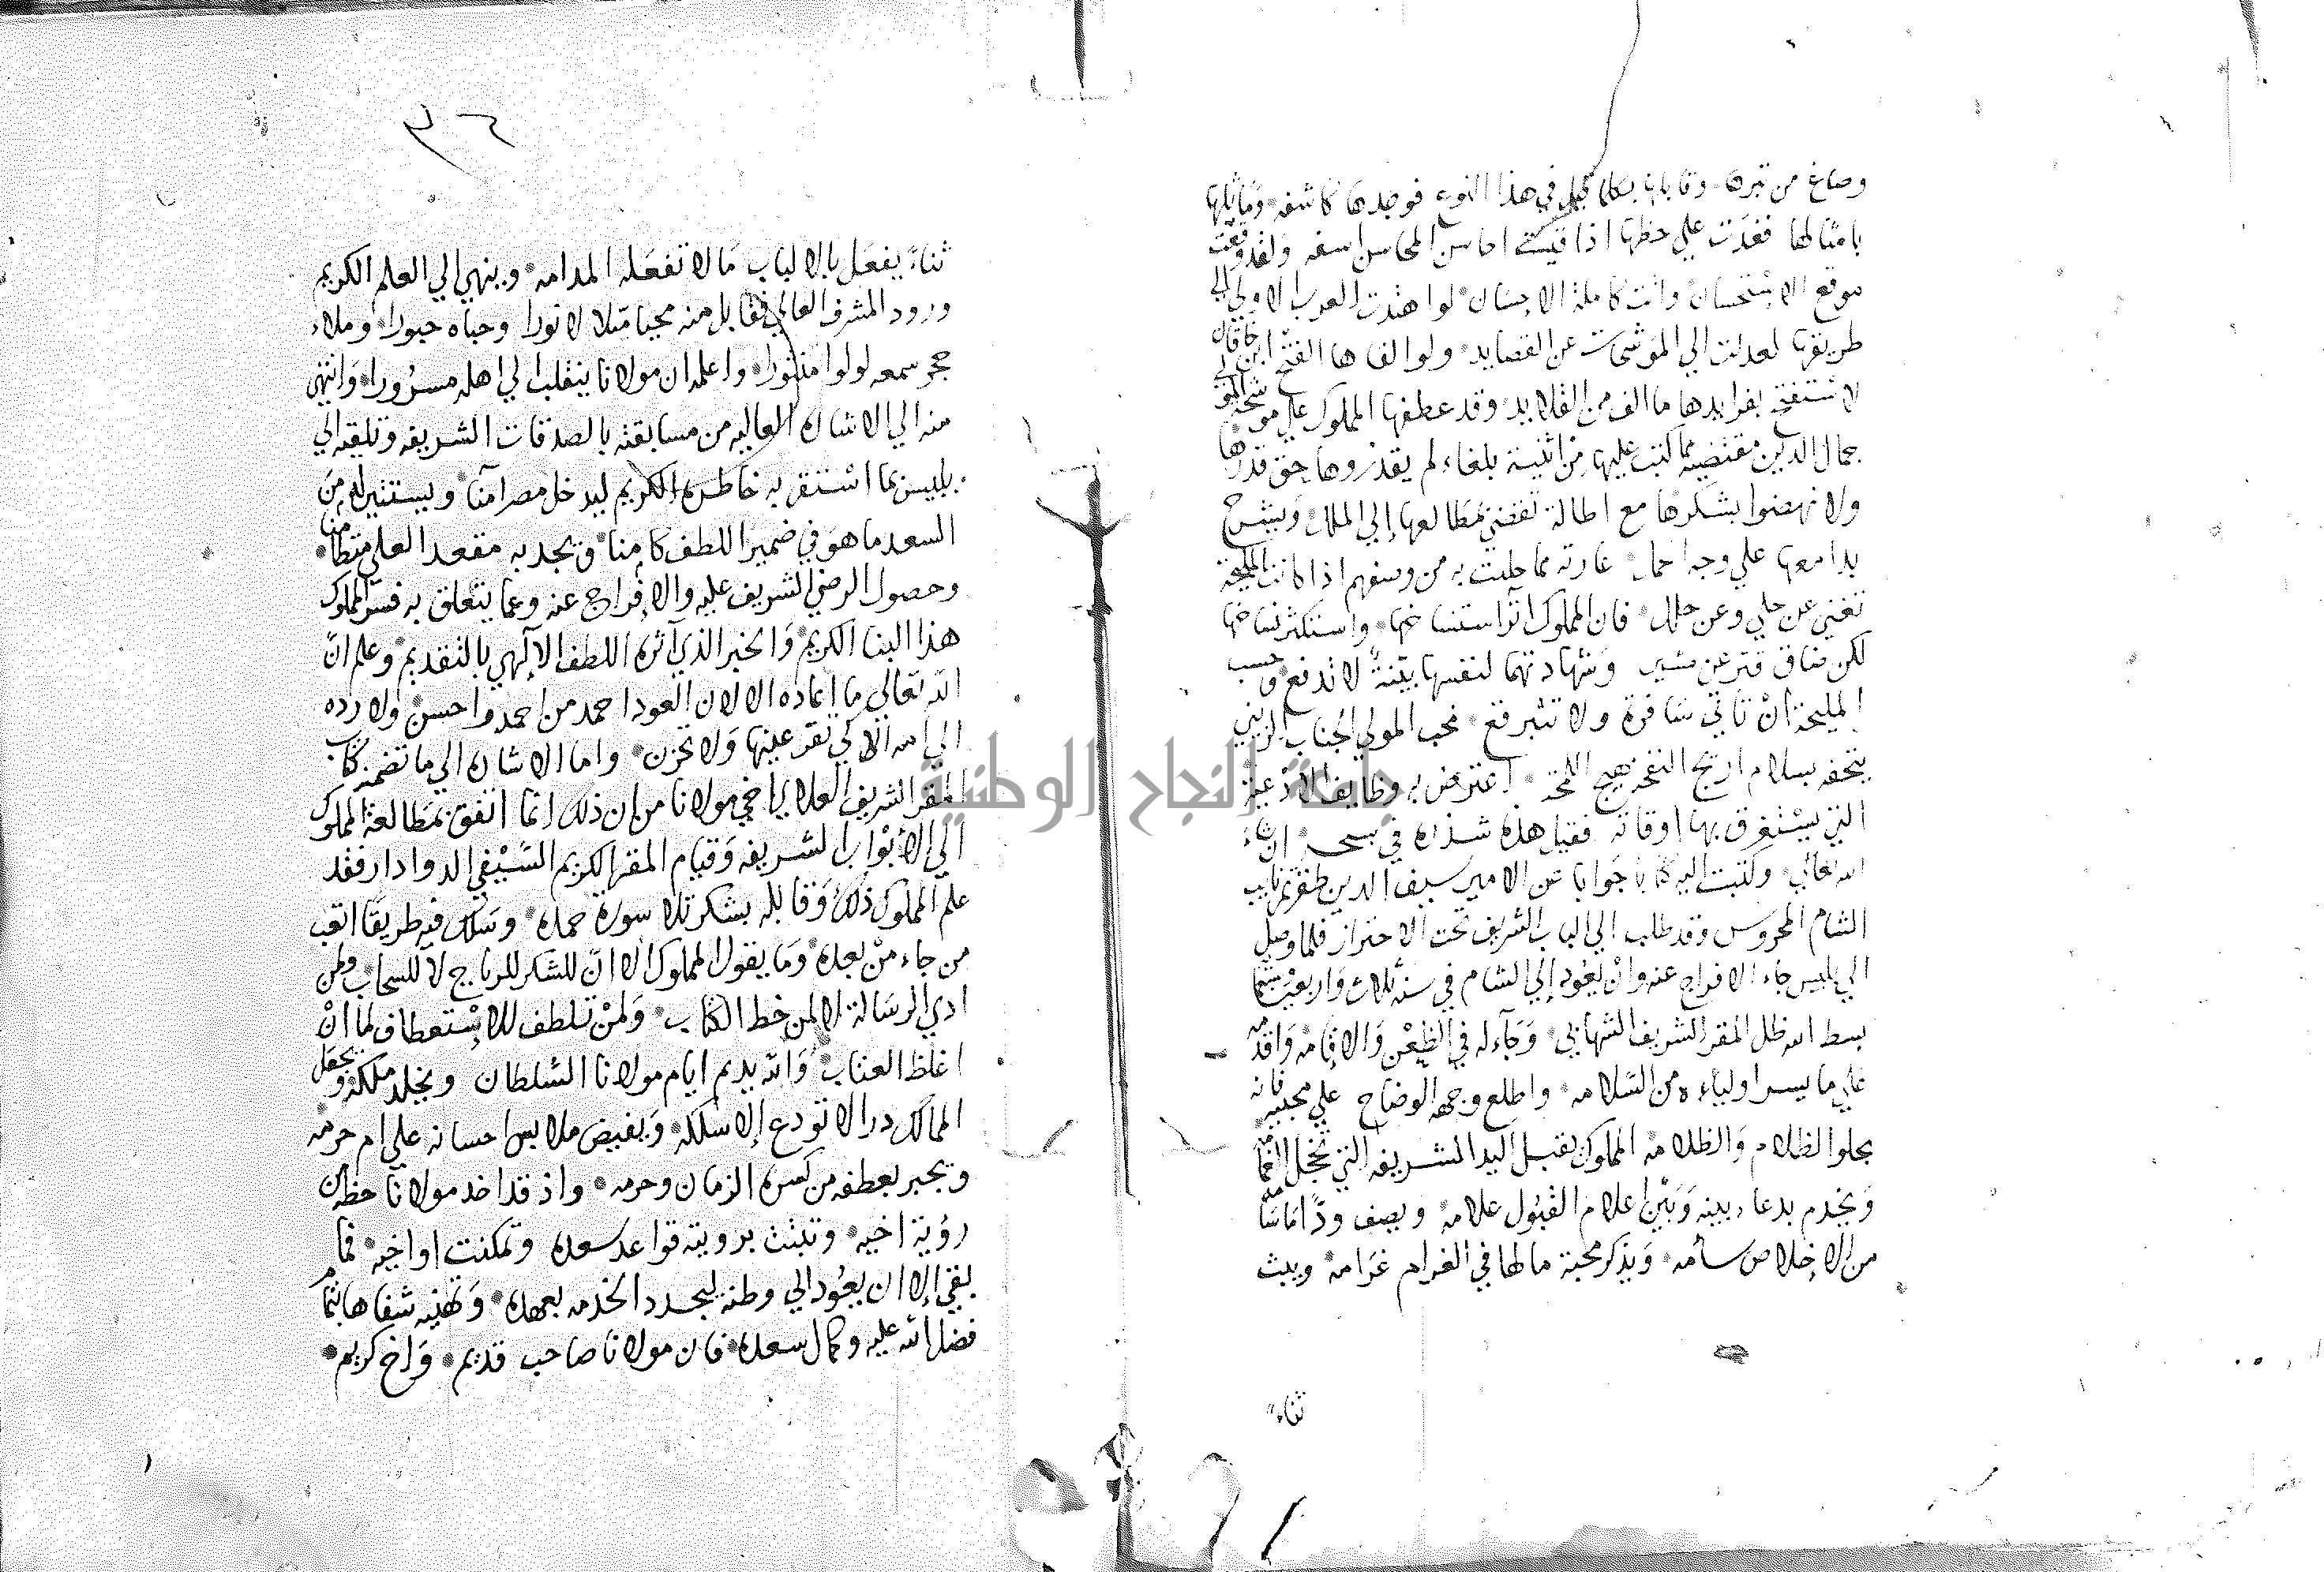 وصاغ من تبرها وقابلها بكلما قيل في هذا النوع فوجدها كاشفه وماثلها
بامثالها فغدت علي حظها اذا قيست احاسن المحاسن اسفه ولقد وقعت
موقع الاستحسان واتت كاملة الاحسان لو اهتدت العرب الاولي الي
طريقها لعدلت الي الموشحات عن القصايد ولو الفاها الفتح ابن خاقان
لاستفتح بفرايدها ما الف من القلايد وقد عطفها المملوك علي موشحة المولي
جمال الدين مقتضيه مما كتب عليها من اثنية بلغاء لم يقدروها حق قدرها
ولا نهضوا بشكرها مع اطالة تفضي بمطالعها إلي الملل
علي وجه مما حليت به من وسفهم اذا كانت المليحة
تغني عن حلي وعن حلل فان المملوك آثر استنساخها واستكثر نساخها
لكن ضاق فتر عن مسير وشهادتهما لنفسها بيّنة لا تدفع وحسب
المليحة أنْ تأتي سافرة ولا تتبرقع محب المولي الجناب الزيني
يتحفه بسلام اريج النفحه بهيج اللمحة اعترض به وظايف الادعية
التي يستغرق بها اوقاته فقيل هذه شذرة في سبحه ان شاء
الله تعالي وكتبت اليه كتابا جوابا عن الامير سيف الدين طقزتمر نايب
الشام المحروس وقد طلب الي الباب الشريف تحت الاحتراز فلما وصل
الي بلبيس جاء الافراج عنه وانْ يعود إلي الشام في سنة ثلاث واربعين
بسط الله ظل المقر الشريف الشهابي وجاء له في الظعن والاقامه واقدمه
علي ما يسر اولياءه من السّلامه واطلع وجهه الوضاح علي محبيه فانه
يجلوا الظلام والظلامه المملوك يقبل اليد الشريفه التي تخجل الغمامه
ويخدم بدعاء بينه وبَيْن اعلام القبُول علامه ويصف ودًّا ما شابه
من الاخلاص سأمه ويذكر محبة ما لها في الغرام غرامه ويبث
ثناءً
٣٦
ثناءً يفعل بالالباب مَا لا تفعَله المدامه وينهي الي العلم الكريم
ورود المشرف العالي فقابل منه محيا متلالا نورا وحباه حبورا وملاء
حجر سمعه لولوا منثورا واعلمه ان مولانا ينقلب الي اهله مسرُورا وانتهي
منه الي الاشاره العاليه من مسابقته بالصدقات الشريفه وتلقيه الي
بلبيس بما استقر به خاطره الكريم ليدخل مصر امنا ويستثير له من
السعد ما هو في ضمير اللطف كامنا ويجد به مقعد العلي متطامنا
وحصول الرضي الشريف عليه والافراج عنه وعما يتعلق به فسر المملوك
هذا النبا الكريم وَالخير الذي آثره اللطف الإلهي بالتقديم وعلم انّ
الله تعالي ما اعاده الا لان العود احمد من احمد واحسن ولا رده
الي امه إلا كي تقر عينها وَلا تحزن واما الاشاره الي ما تضمنه كتاب
المقر الشريف العلايي اخي مولانا من ان ذلك انما اتفق بمَطالعة المملوك
الي الأبْواب الشريفه وَقيام المقر الكريم السّيْفي الدوادار فقد
علم المملوك ذلك وَقابله بشكر تلا سورة حمده وسلك فيه طريقًا اتعب
من جاء منْ بعده وَما يقول المملوك الا انّ للشكر للرياح لا للسحاب ولمن
ادي الرسَالة لا لمن خط الكتاب وَلمنْ تلطف للاِسْتعطاف لما انْ
اغلظ العتاب وَالله يديم ايام مولانا السّلطان ويخلد ملكه ويجعل
الممالك درا لا تودع إلا سلكه وَيفيض ملابس احسانه علي ام حرمه
ويجبر بعطفه من كسره الزمان وحرمه واذ قد اخد مولانا حظه من
رؤية اخيه وتبتت برويته قواعد سعده وتمكنت اواخيه فما
بقي إلا ان يعُود الي وطنه ليجدد الخدمه بعهده وَتهنيه شفاها بتمام
فضل الله عليه وكمال سعده فان مولانا صاحب قديم وَاخ كريم
جامعة النجاح الوطنية